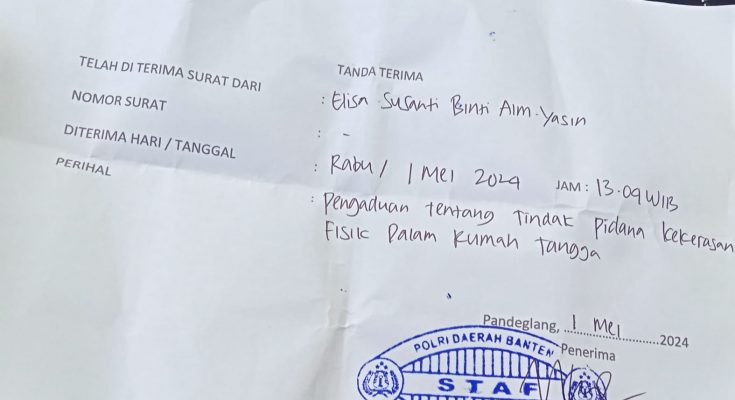 TANDA TERIMA
TELAH DI TERIMA SURAT DARI : Elisa Susanti Binti Alm. Yasin
NOMOR SURAT : -
DITERIMA HARI / TANGGAL : Rabu / 1 Mei 2024 JAM : 13.09 WIB
PERIHAL : Pengaduan tentang Tindak Pidana Kekerasan
Fisik Dalam Rumah Tangga
Pandeglang, 1 Mei 2024
Penerima
POLRI DAERAH BANTEN
STAF